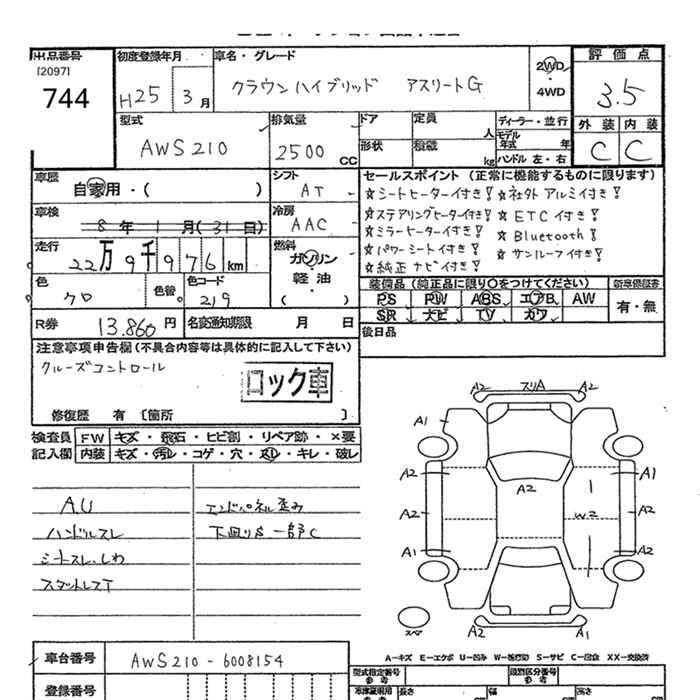 出品番号
[2097]
744
初度登録年月
H25 3月
車名・グレード
クラウンハイブリッド アスリートG
2WD
・
4WD
評価点
3.5
外装 内装
C C
型式
AWS210
排気量
2500 CC
ドア
形状
定員
人
積載
kg
ディーラー・並行
モデル
年式 年
ハンドル 左・右
車歴
自家用・( )
シフト
AT
車検
8年1月(31日)
冷房
AAC
走行
22万9千976km
燃料
ガソリン
軽油
( ・ )
色
クロ
色替
色コード
219
R券
13.860円
名変通知期限 月 日
セールスポイント (正常に機能するものに限ります)
☆シートヒーター付き! ☆社外アルミ付き!
☆ステアリングヒーター付き! ☆ETC付き!
☆ミラーヒーター付き! ☆Bluetooth!
☆パワーシート付き! ☆サンルーフ付き!
☆純正ナビ付き!
装備品(純正品に限り○をつけてください)
PS PW ABS エアB AW
SR ナビ TV カワ
新車保証書
有・無
後日品
注意事項申告欄(不具合内容等は具体的に記入して下さい)
クルーズコントロール
ロック車
修復歴 有 〔箇所 〕
検査員 FW キズ・飛石・ヒビ割・リペア跡・×要
記入欄 内装 キズ・汚レ・コゲ・穴・スレ・キレ・破レ
A.U
ハンドルスレ
シートスレ.しわ
スタットレスT
エンドパネル歪み
下回りS 一部C
A2 スリA A2
A1
A2 A1
A2
A2 W2 A2
A1 A2
スペア
A2 A1
A-キズ E-エクボ U-凹み W-補修跡 S-サビ C-腐食 XX-交換済
車台番号
AWS210-6008154
登録番号
型式指定番号
参考
類別区分番号
参考
長さ
幅
高さ